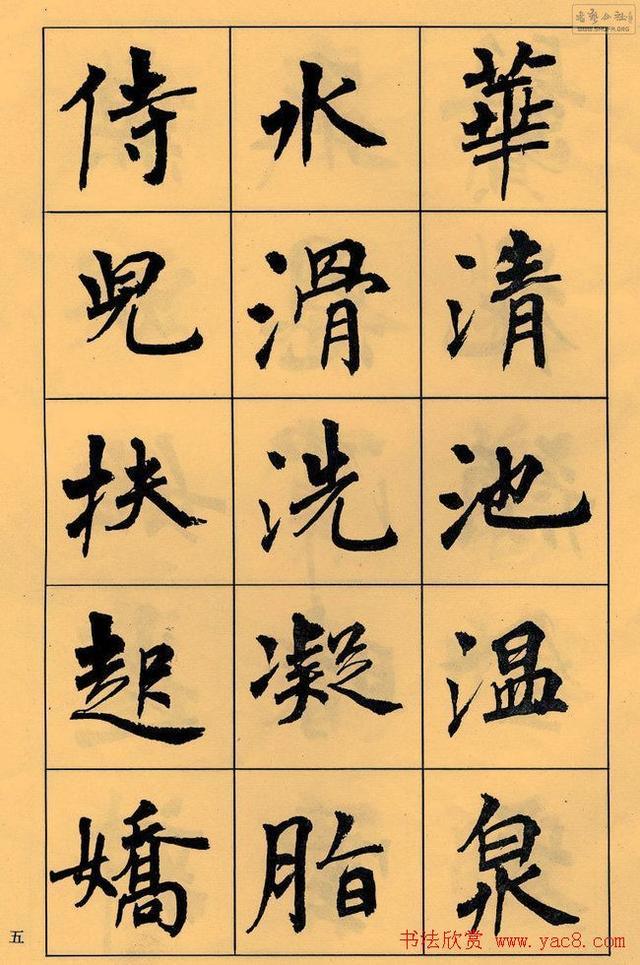 華清池温泉
水滑洗凝脂
侍兒扶起嬌
五
书法欣赏 www.yac8.com
WWW.SHUFA.ORG